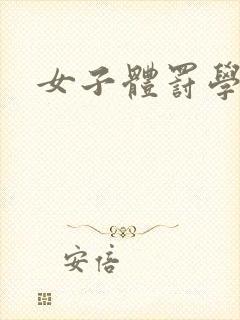 女子體罰學
安倍